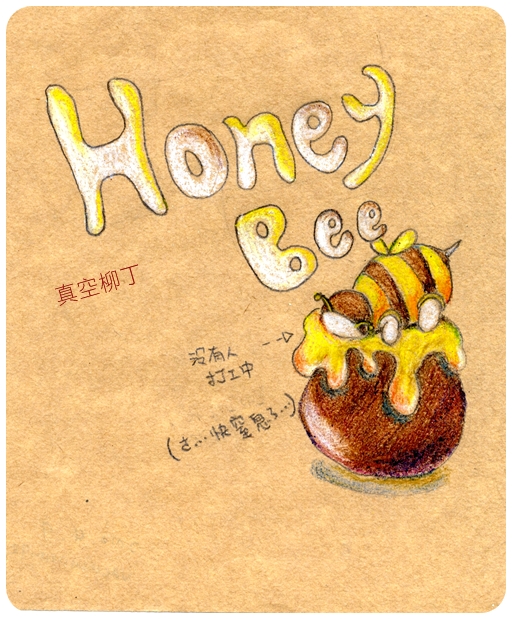 Honey
Bee
真空柳丁
沒有人
打工中
(さ...快窒息了...)